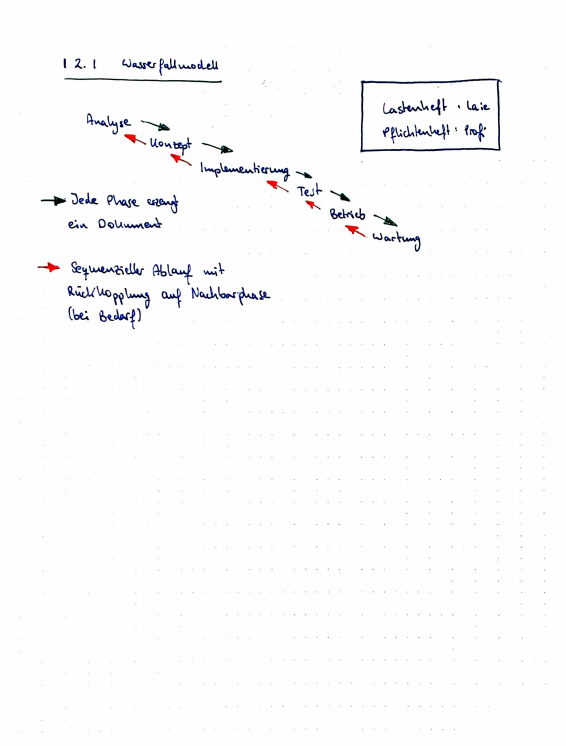 1 2.1 Wasserfallmodell
Lastenheft : Laie
Pflichtenheft : Profi
Analyse
Konzept
Implementierung
Test
Betrieb
Wartung
Jede Phase erzeugt
ein Dokument
Sequenzieller Ablauf mit
Rückkopplung auf Nachbarphase
(bei Bedarf)